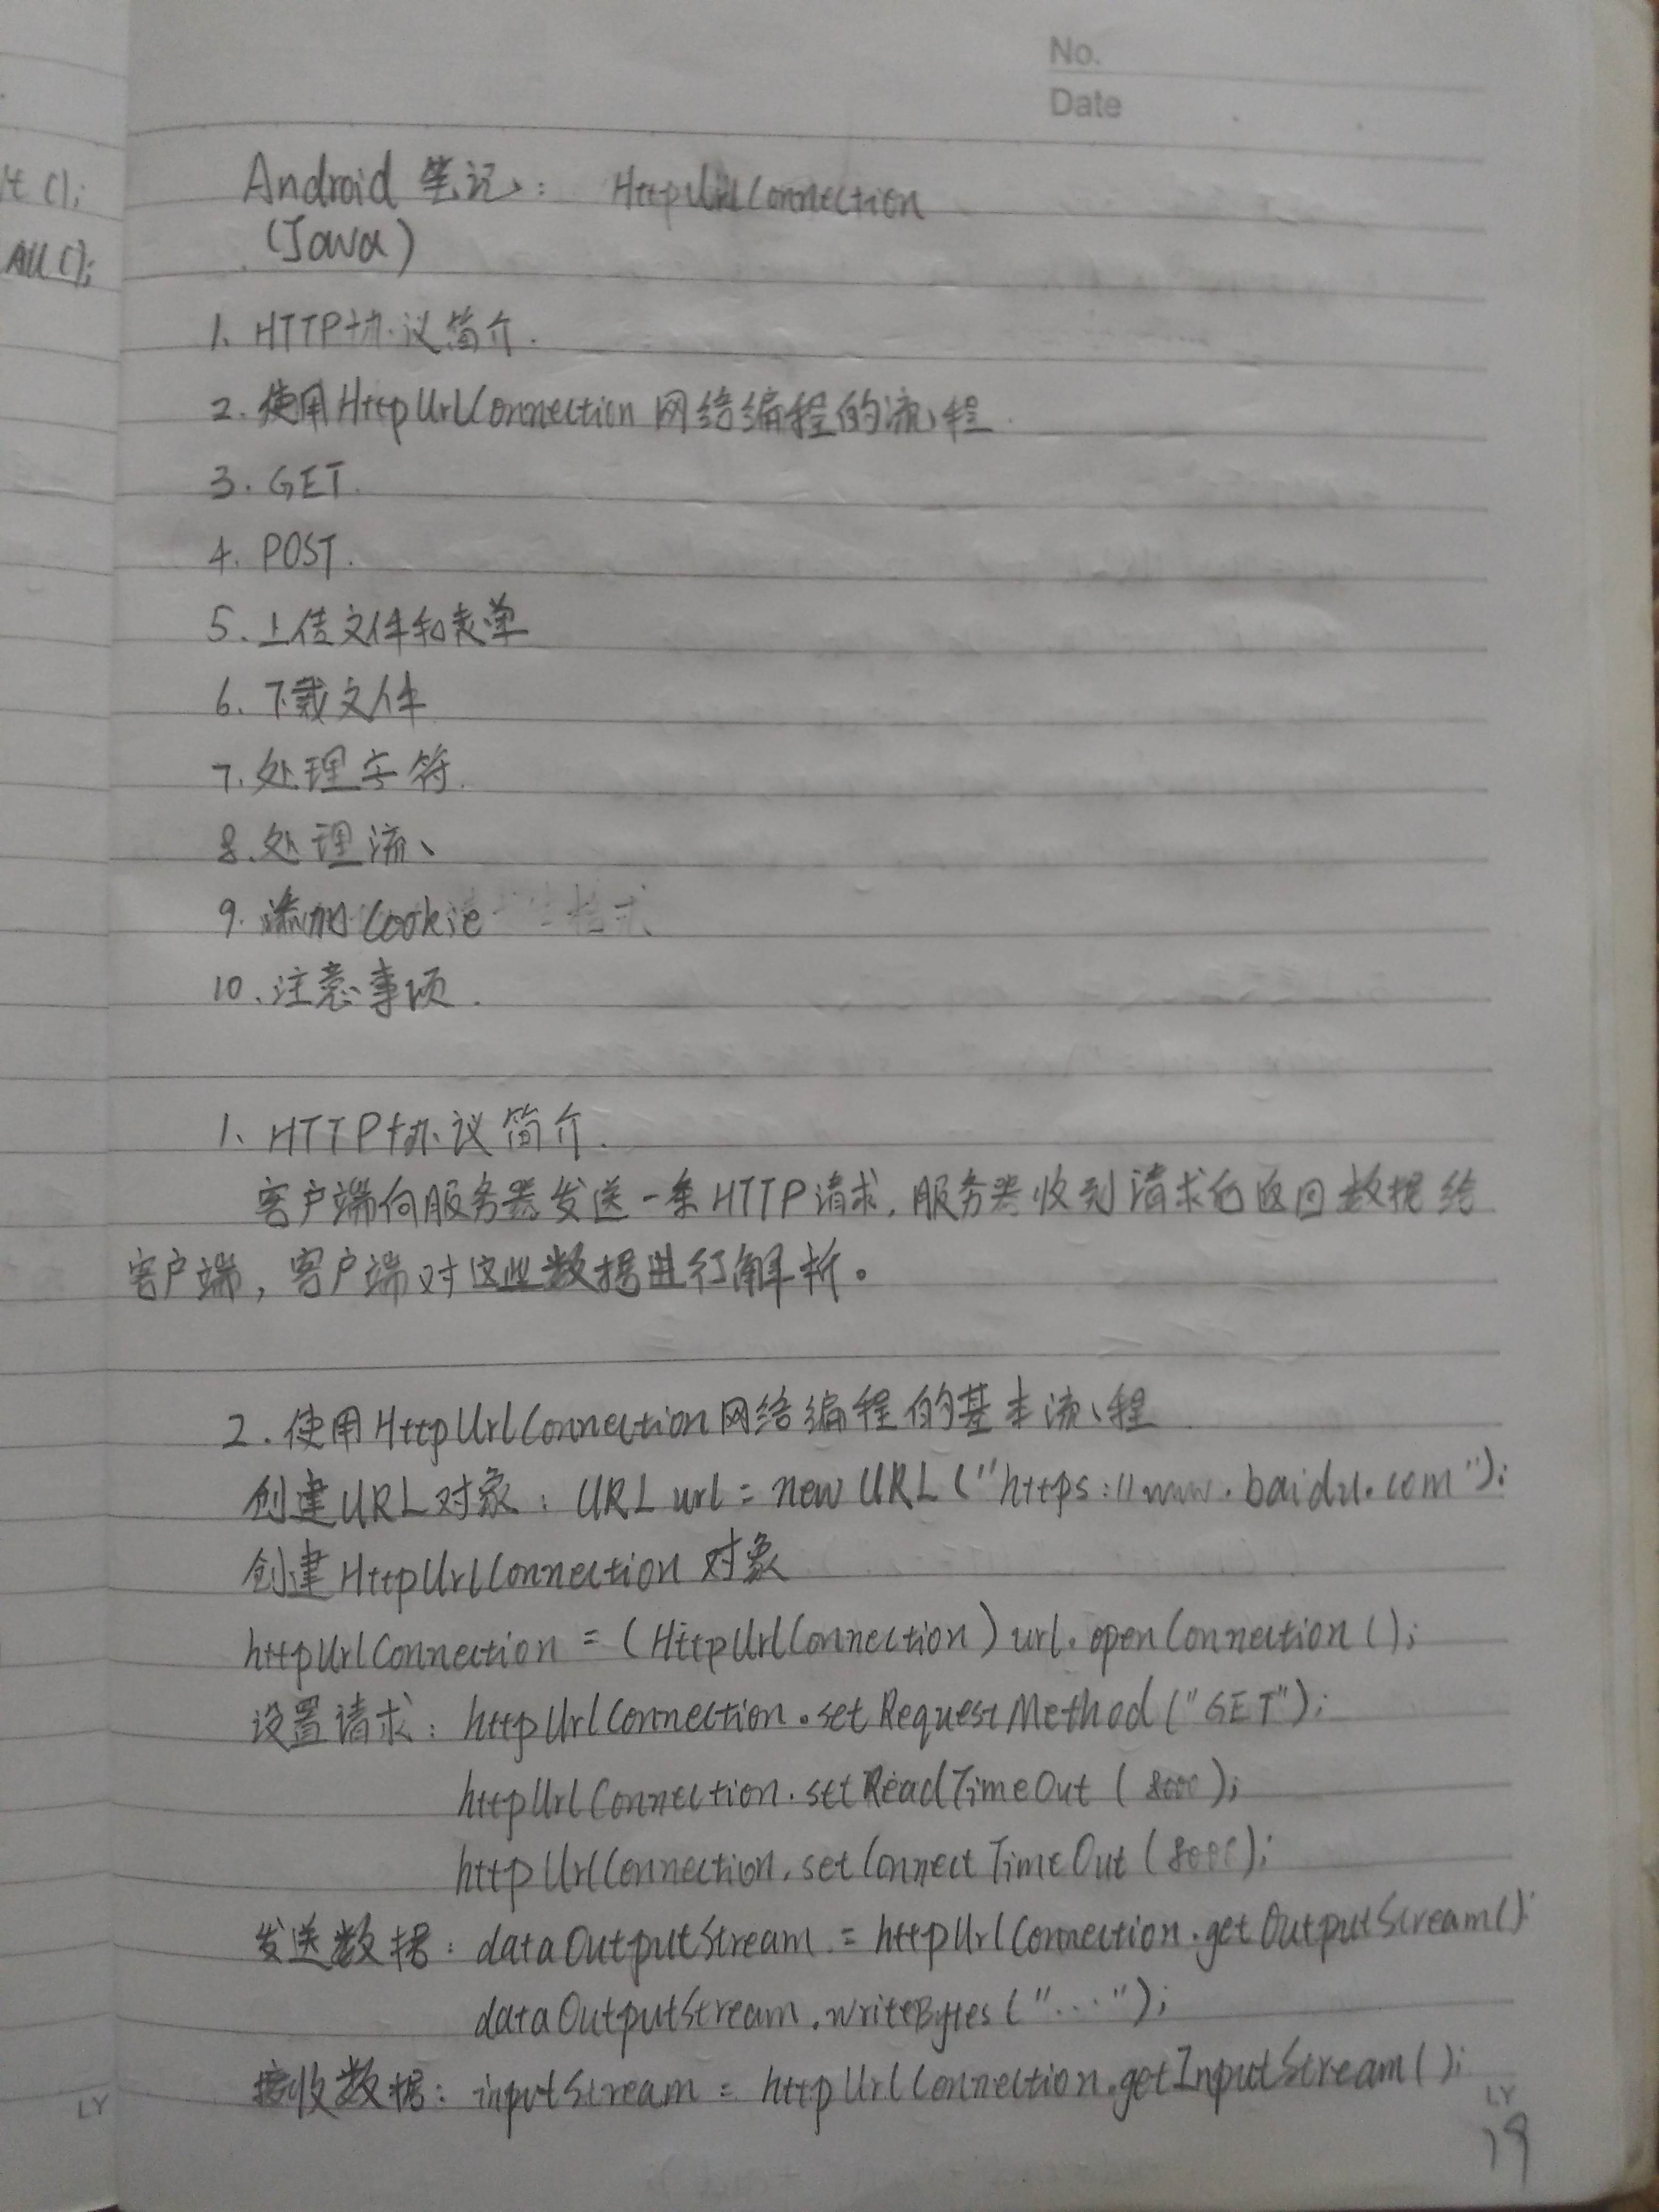 No.
Date
t();
All();
Android 笔记: HttpUrlConnection
(Java)
1、HTTP协议简介.
2. 使用HttpUrlConnection 网络编程的流程.
3. GET.
4. POST.
5、上传文件和表单
6、下载文件
7、处理字符.
8、处理流、
9. 添加Cookie
10、注意事项.
1、HTTP协议简介.
客户端向服务器发送一条HTTP请求,服务器收到请求后返回数据给
客户端,客户端对这些数据进行解析。
2. 使用HttpUrlConnection网络编程的基本流程
创建URL对象: URL url = new URL("https://www.baidu.com");
创建HttpUrlConnection 对象
httpUrlConnection = (HttpUrlConnection) url.openConnection();
设置请求: httpUrlConnection.setRequestMethod("GET");
httpUrlConnection.setReadTimeOut(8000);
httpUrlConnection.setConnectTimeOut(8000);
发送数据: dataOutputStream = httpUrlConnection.getOutputStream();
dataOutputStream.writeBytes("...");
接收数据: inputStream = httpUrlConnection.getInputStream();
LY
LY
19